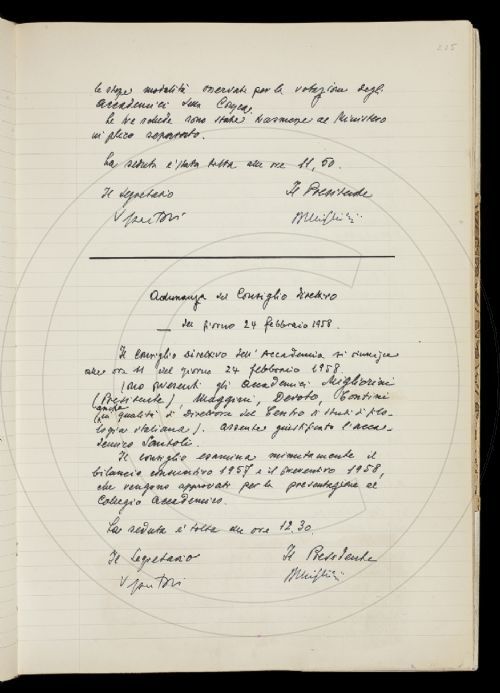 205
le stesse modalità osservate per la votazione degli
accademici della Crusca.
Le tre schede sono state trasmesse al Ministero
in plico separato.
La seduta è stata tolta alle ore 11,50.
Il Segretario Il Presidente
BMigliorini
Adunanza del Consiglio Direttivo
del giorno 24 febbraio 1958.
Il Consiglio Direttivo dell'Accademia si riunisce
alle ore 11 del giorno 24 febbraio 1958.
Sono presenti gli accademici Migliorini
(Presidente), Maggini, Devoto, Contini
(anche in qualità di Direttore del Centro di studi di filo-
logia italiana). Assente giustificato l'acca-
demico Santoli.
Il Consiglio esamina minutamente il
bilancio consuntivo 1957 e il preventivo 1958,
che vengono approvati per la presentazione al
Collegio Accademico.
La seduta è tolta alle ore 12.30.
Il Segretario Il Presidente
BMigliorini